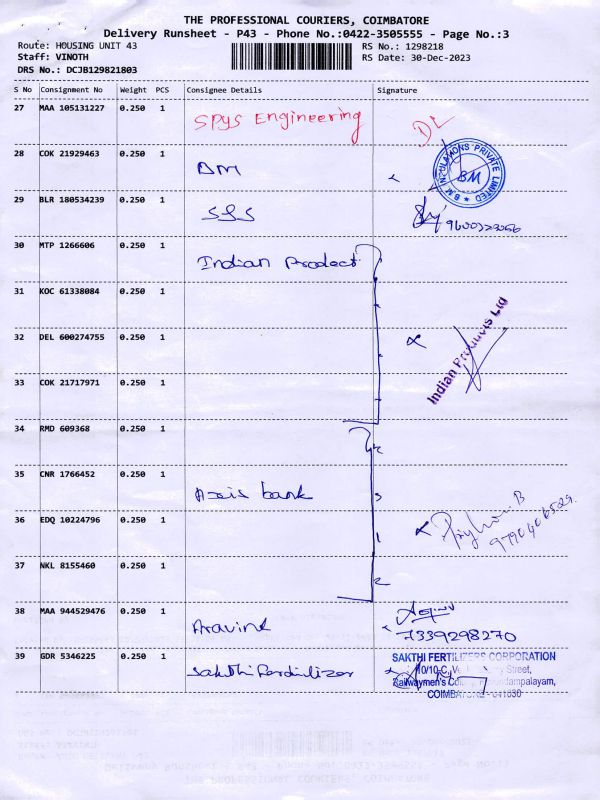 THE PROFESSIONAL COURIERS, COIMBATORE
Delivery Runsheet - P43 - Phone No.:0422-3505555 - Page No.:3
Route: HOUSING UNIT 43 RS No.: 1298218
Staff: VINOTH RS Date: 30-Dec-2023
DRS No.: DCJB129821803
S No Consignment No Weight PCS Consignee Details Signature
27 MAA 105131227 0.250 1 SPYS Engineering DL
28 COK 21929463 0.250 1 BM B M INSULATIONS PRIVATE LIMITED BM
29 BLR 180534239 0.250 1 SLS
30 MTP 1266606 0.250 1 Indian Prodect
31 KOC 61338084 0.250 1
32 DEL 600274755 0.250 1 Indian Products Ltd
33 COK 21717971 0.250 1
34 RMD 609368 0.250 1
35 CNR 1766452 0.250 1 Axis bank
36 EDQ 10224796 0.250 1
37 NKL 8155460 0.250 1
38 MAA 944529476 0.250 1 Aravind
7339298270
39 GDR 5346225 0.250 1 Sakthi Fardilizer
SAKTHI FERTILIZERS CORPORATION
10/10-C, Street,
Railwaymen's Goundampalayam,
COIMBATORE - 641030